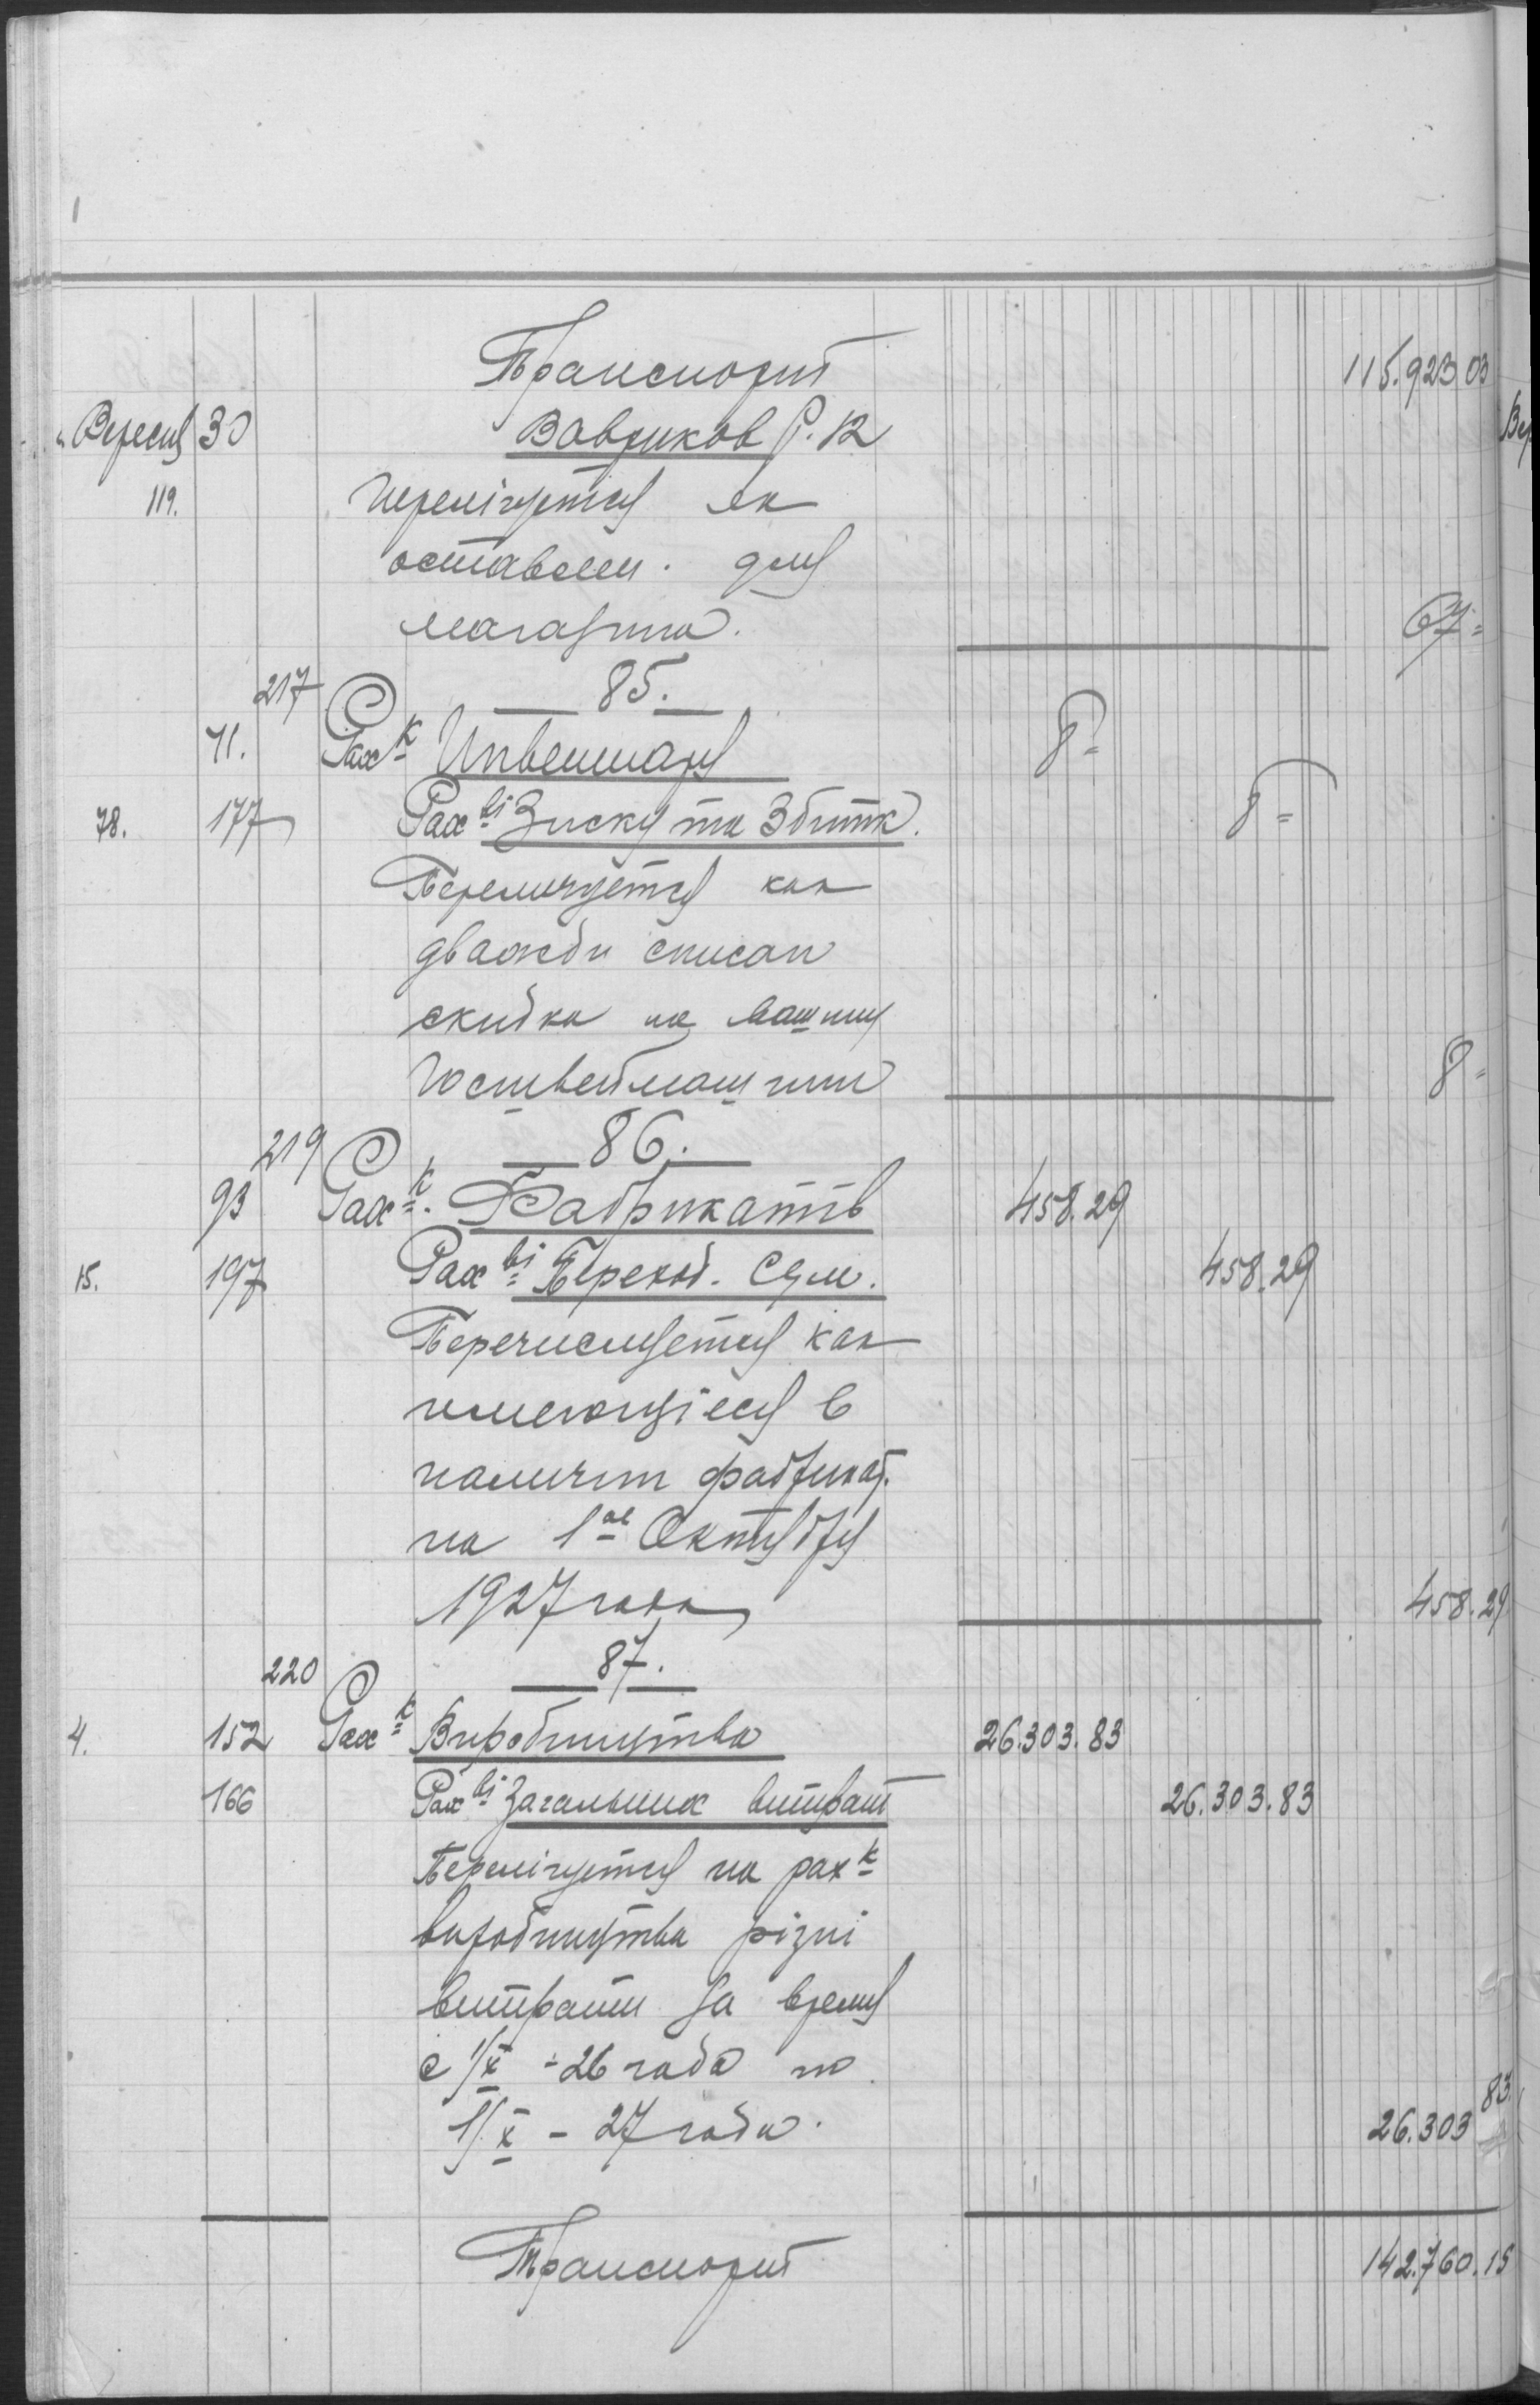 Транспорт 115.923 03
Вересня 30 Вавриков Р. К
119. перелічуется як
оставлен. для
магазина. 67 =
217 85.
71. Рах к Инвентарю 8 =
78. 177 Рах ві Зиску та Збитк. 8 =
Перелічуется как
дважди списан
скидка на машину
Госшвеймашини 8 =
219 86.
93 Рах к. Фабрикатів 458.29
15. 197 Рах ві Переход. Сум. 458.29
Перечисляется как
имеющіеся в
наличии фабрикат.
на 1ое Октября
1927 года 458.29
220 87.
4. 152 Рах к Виробництва 26.303.83
166 Рах ві Загальних витрат 26.303.83
Перелічуется на рах к
виробництва різні
витрати за время
с 1/X - 26 года по
1/X - 27 года. 26.303 83
Транспорт 142.760.15